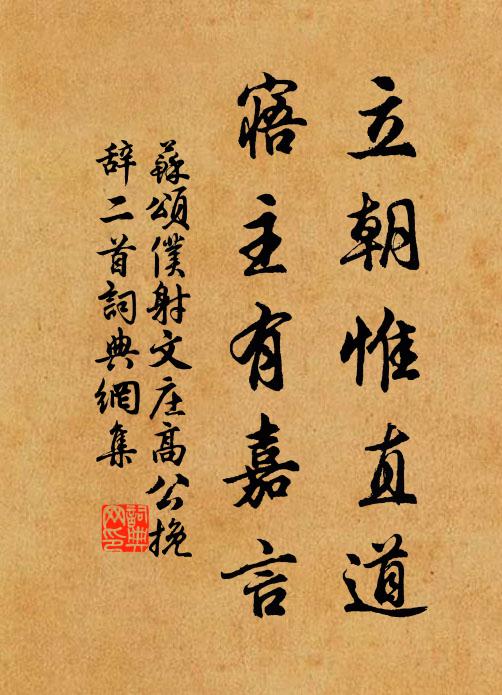 立朝惟直道
寤主有嘉言
蘇頌僕射文庄高公挽
辞二首詞典網集
詞典网印